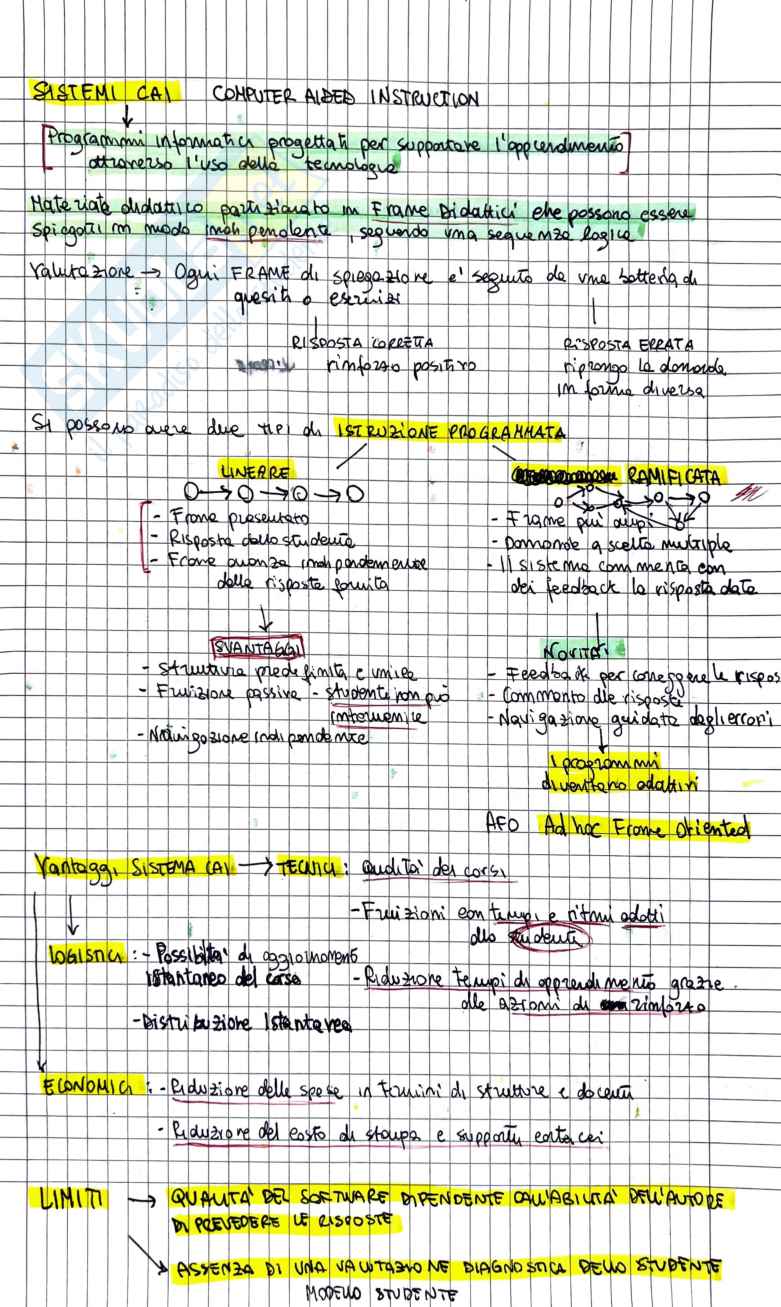 SISTEMI CAI COMPUTER AIDED INSTRUCTION
Programmi informatici progettati per supportare l'apprendimento
attraverso l'uso della tecnologia
Materiale didattico partizionato in Frame Didattici che possono essere
spiegati in modo indipendente, seguendo una sequenza logica
Valutazione → Ogni FRAME di spiegazione e' seguito da una batteria di
quesiti o esercizi
RISPOSTA CORRETTA
rinforzo positivo
RISPOSTA ERRATA
ripropongo la domanda
in forma diversa
Si possono avere due tipi di ISTRUZIONE PROGRAMMATA
LINEARE
- Frame presentato
- Risposta dallo studente
- Frame avanza indipendentemente
dalla risposta fornita
SVANTAGGI
- Struttura predefinita e unica
- Fruizione passiva - studente non può
intervenire
- Navigazione indipendente
RAMIFICATA
- Frame più ampi
- Domande a scelta multiple
- Il sistema commenta con
dei feedback la risposta data
NOVITA'
- Feedback per correggere le rispos
- Commento alle risposte
- Navigazione guidata dagli errori
I programmi
diventano adattivi
AFO Ad hoc Frame Oriented
Vantaggi SISTEMA CAI → TECNICI : Qualita' dei corsi
- Fruizioni con tempi e ritmi adatti
allo studente
- Riduzione tempi di apprendimento grazie
alle azioni di rinforzo
LOGISTICI : - Possibilita' di aggiornamento
istantaneo del corso
- Distribuzione Istantanea
ECONOMICI : - Riduzione delle spese in termini di strutture e docenti
- Riduzione del costo di stampa e supporti cartacei
LIMITI → QUALITA' DEL SOFTWARE DIPENDENTE DALL'ABILITA' DELL'AUTORE
DI PREVEDERE LE RISPOSTE
ASSENZA DI UNA VALUTAZIONE DIAGNOSTICA DELLO STUDENTE
MODELLO STUDENTE